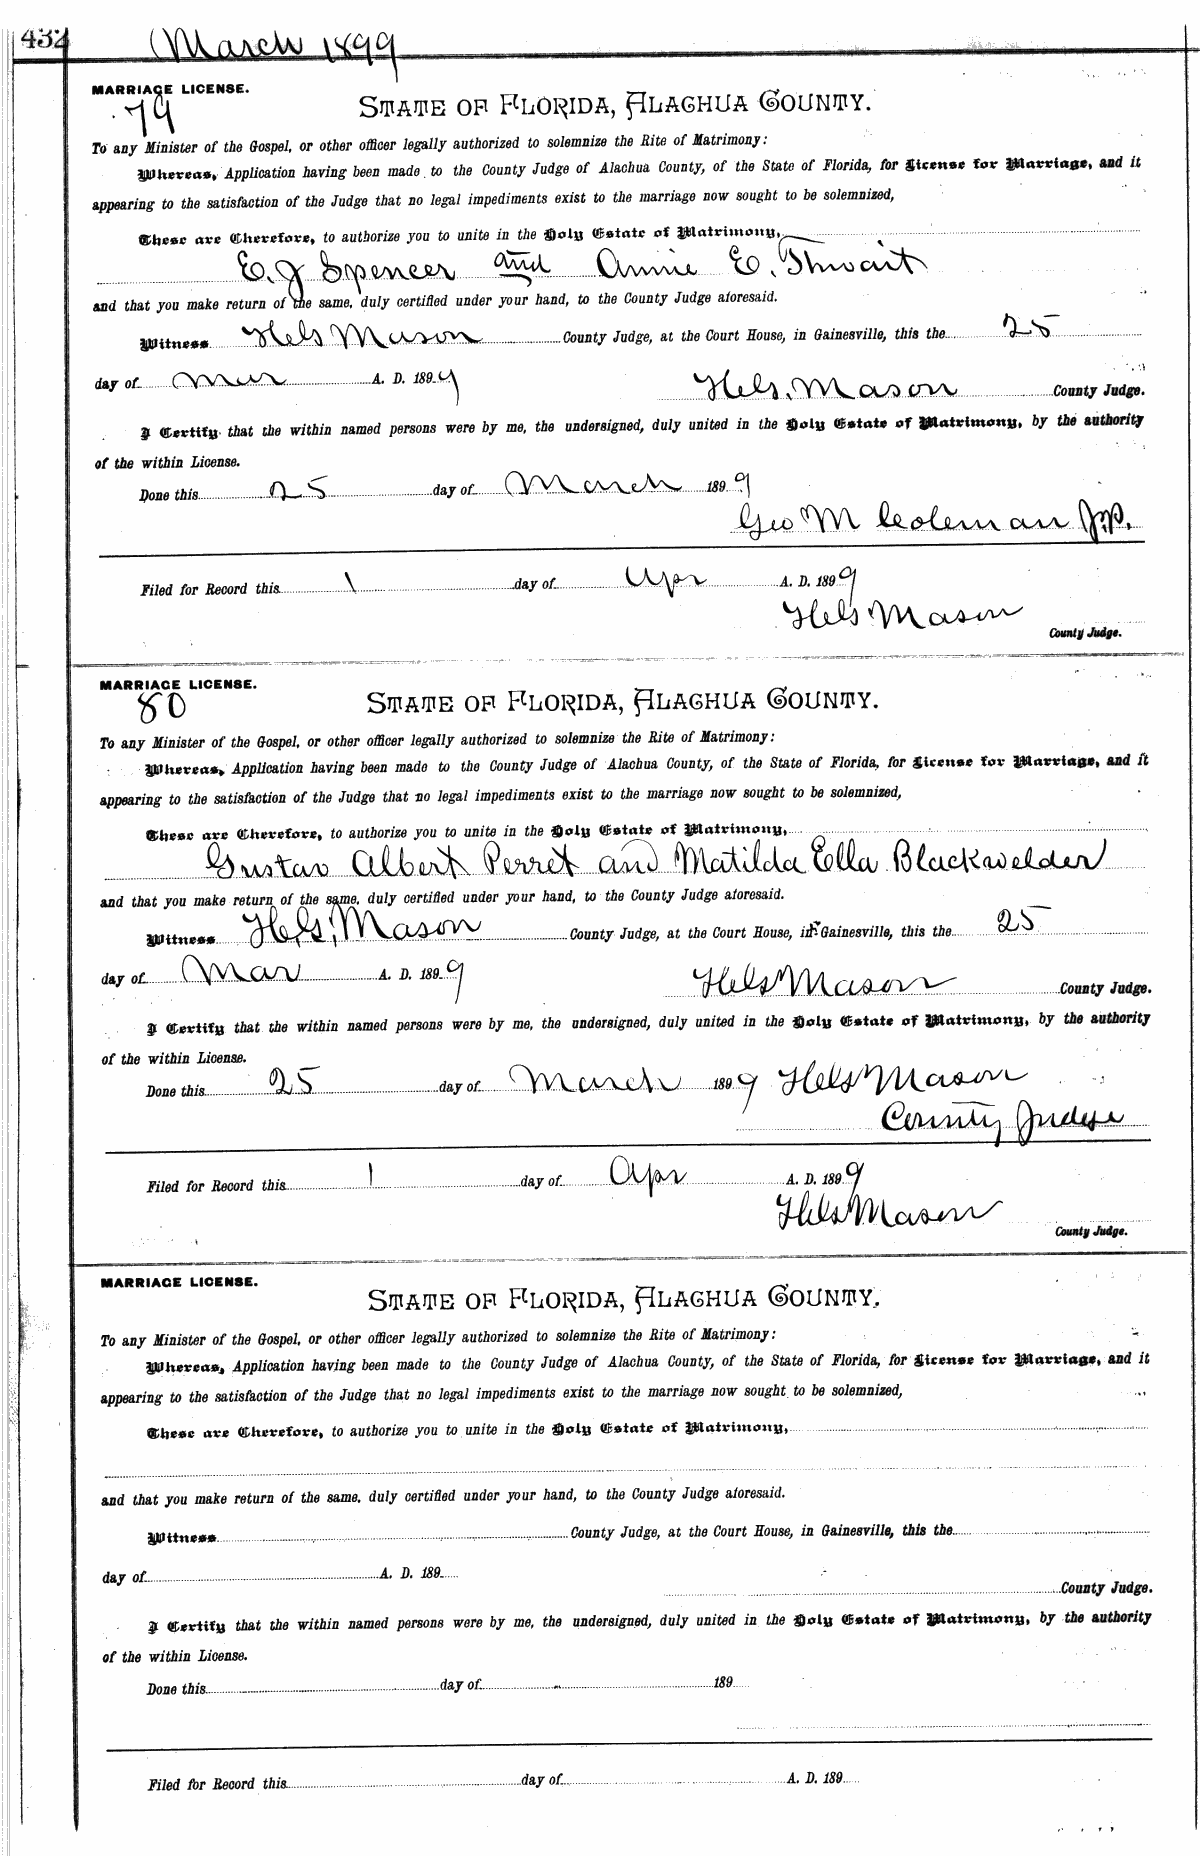 432 March 1899
MARRIAGE LICENSE.
79
STATE OF FLORIDA, ALACHUA COUNTY.
To any Minister of the Gospel, or other officer legally authorized to solemnize the Rite of Matrimony:
Whereas, Application having been made to the County Judge of Alachua County, of the State of Florida, for License for Marriage, and it
appearing to the satisfaction of the Judge that no legal impediments exist to the marriage now sought to be solemnized,
These are Therefore, to authorize you to unite in the Holy Estate of Matrimony,
E. J Spencer and Annie E. Thwait
and that you make return of the same, duly certified under your hand, to the County Judge aforesaid.
Witness H.G. Mason County Judge, at the Court House, in Gainesville, this the 25
day of Mar A. D. 1899 H.G. Mason County Judge.
I Certify that the within named persons were by me, the undersigned, duly united in the Holy Estate of Matrimony, by the authority
of the within License.
Done this 25 day of March 1899
Geo M Coleman J.P.
Filed for Record this 1 day of Apr A. D. 1899
H.G. Mason
County Judge.
MARRIAGE LICENSE.
80
STATE OF FLORIDA, ALACHUA COUNTY.
To any Minister of the Gospel, or other officer legally authorized to solemnize the Rite of Matrimony:
Whereas, Application having been made to the County Judge of Alachua County, of the State of Florida, for License for Marriage, and it
appearing to the satisfaction of the Judge that no legal impediments exist to the marriage now sought to be solemnized,
These are Therefore, to authorize you to unite in the Holy Estate of Matrimony,
Gustav Albert Perret and Matilda Ella Blackwelder
and that you make return of the same, duly certified under your hand, to the County Judge aforesaid.
Witness H.G. Mason County Judge, at the Court House, in Gainesville, this the 25
day of Mar A. D. 1899 H.G. Mason County Judge.
I Certify that the within named persons were by me, the undersigned, duly united in the Holy Estate of Matrimony, by the authority
of the within License.
Done this 25 day of March 1899 H.G. Mason
County Judge
Filed for Record this 1 day of Apr A. D. 1899
H.G. Mason
County Judge.
MARRIAGE LICENSE.
STATE OF FLORIDA, ALACHUA COUNTY.
To any Minister of the Gospel, or other officer legally authorized to solemnize the Rite of Matrimony:
Whereas, Application having been made to the County Judge of Alachua County, of the State of Florida, for License for Marriage, and it
appearing to the satisfaction of the Judge that no legal impediments exist to the marriage now sought to be solemnized,
These are Therefore, to authorize you to unite in the Holy Estate of Matrimony,
and that you make return of the same, duly certified under your hand, to the County Judge aforesaid.
Witness County Judge, at the Court House, in Gainesville, this the
day of A. D. 189
County Judge.
I Certify that the within named persons were by me, the undersigned, duly united in the Holy Estate of Matrimony, by the authority
of the within License.
Done this day of 189
Filed for Record this day of A. D. 189